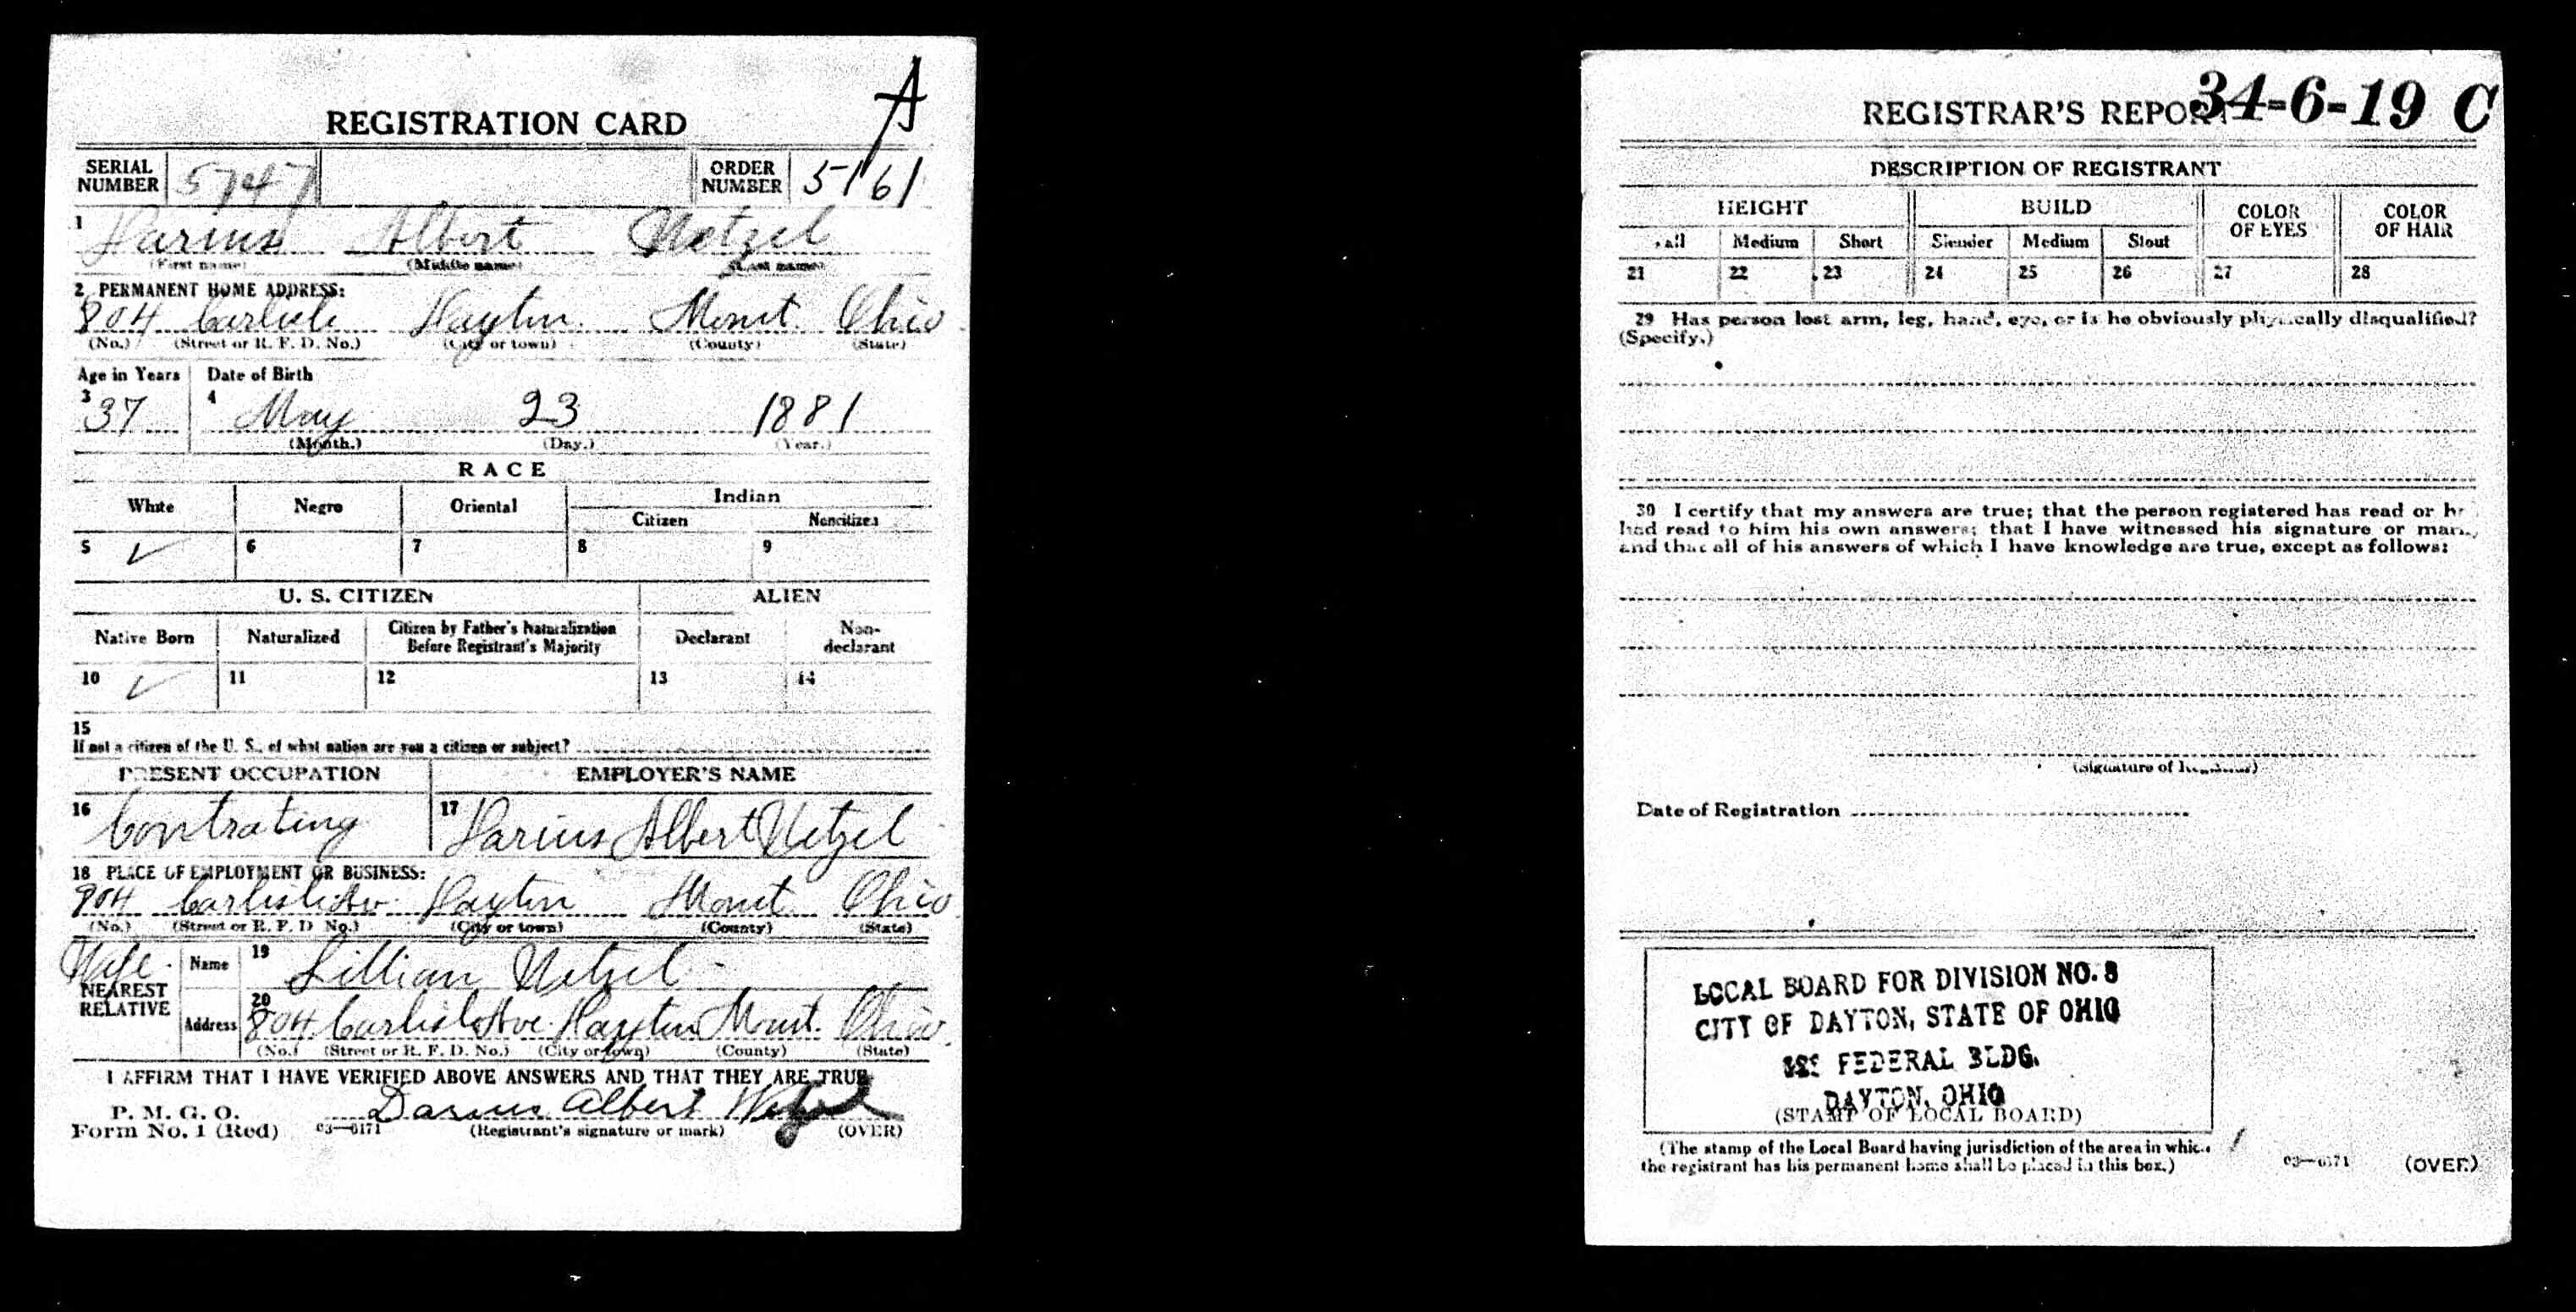 REGISTRATION CARD
A
SERIAL NUMBER 5747
ORDER NUMBER 5161
1 Darius Albert Wetzel
(First name) (Middle name) (Last name)
2 PERMANENT HOME ADDRESS:
804 Carlisle Dayton Mont. Ohio
(No.) (Street or R. F. D. No.) (City or town) (County) (State)
Age in Years Date of Birth
3 37 4 May 23 1881
(Month.) (Day.) (Year.)
RACE
White Negro Oriental Indian
Citizen Noncitizen
5 ✓ 6 7 8 9
U. S. CITIZEN ALIEN
Native Born Naturalized Citizen by Father's Naturalization Before Registrant's Majority Declarant Non-declarant
10 ✓ 11 12 13 14
15
If not a citizen of the U. S., of what nation are you a citizen or subject?
PRESENT OCCUPATION EMPLOYER'S NAME
16 Contrating 17 Darius Albert Wetzel
18 PLACE OF EMPLOYMENT OR BUSINESS:
804 Carlisle Av. Dayton Mont. Ohio
(No.) (Street or R. F. D. No.) (City or town) (County) (State)
Wife
NEAREST RELATIVE
Name 19 Lillian Wetzel
Address 20 804 Carlisle Ave. Dayton Mont. Ohio
(No.) (Street or R. F. D. No.) (City or town) (County) (State)
I AFFIRM THAT I HAVE VERIFIED ABOVE ANSWERS AND THAT THEY ARE TRUE
P. M. G. O.
Form No. 1 (Red) 03—6171
Darius Albert Wetzel
(Registrant's signature or mark) (OVER)
REGISTRAR'S REPORT
34-6-19 C
DESCRIPTION OF REGISTRANT
HEIGHT BUILD COLOR OF EYES COLOR OF HAIR
Tall Medium Short Slender Medium Stout
21 22 23 24 25 26 27 28
29 Has person lost arm, leg, hand, eye, or is he obviously physically disqualified?
(Specify.)
30 I certify that my answers are true; that the person registered has read or has
had read to him his own answers; that I have witnessed his signature or mark,
and that all of his answers of which I have knowledge are true, except as follows:
(Signature of Registrar)
Date of Registration
LOCAL BOARD FOR DIVISION NO. 3
CITY OF DAYTON, STATE OF OHIO
FEDERAL BLDG.
DAYTON, OHIO
(STAMP OF LOCAL BOARD)
(The stamp of the Local Board having jurisdiction of the area in which
the registrant has his permanent home shall be placed in this box.)
03—6171 (OVER)